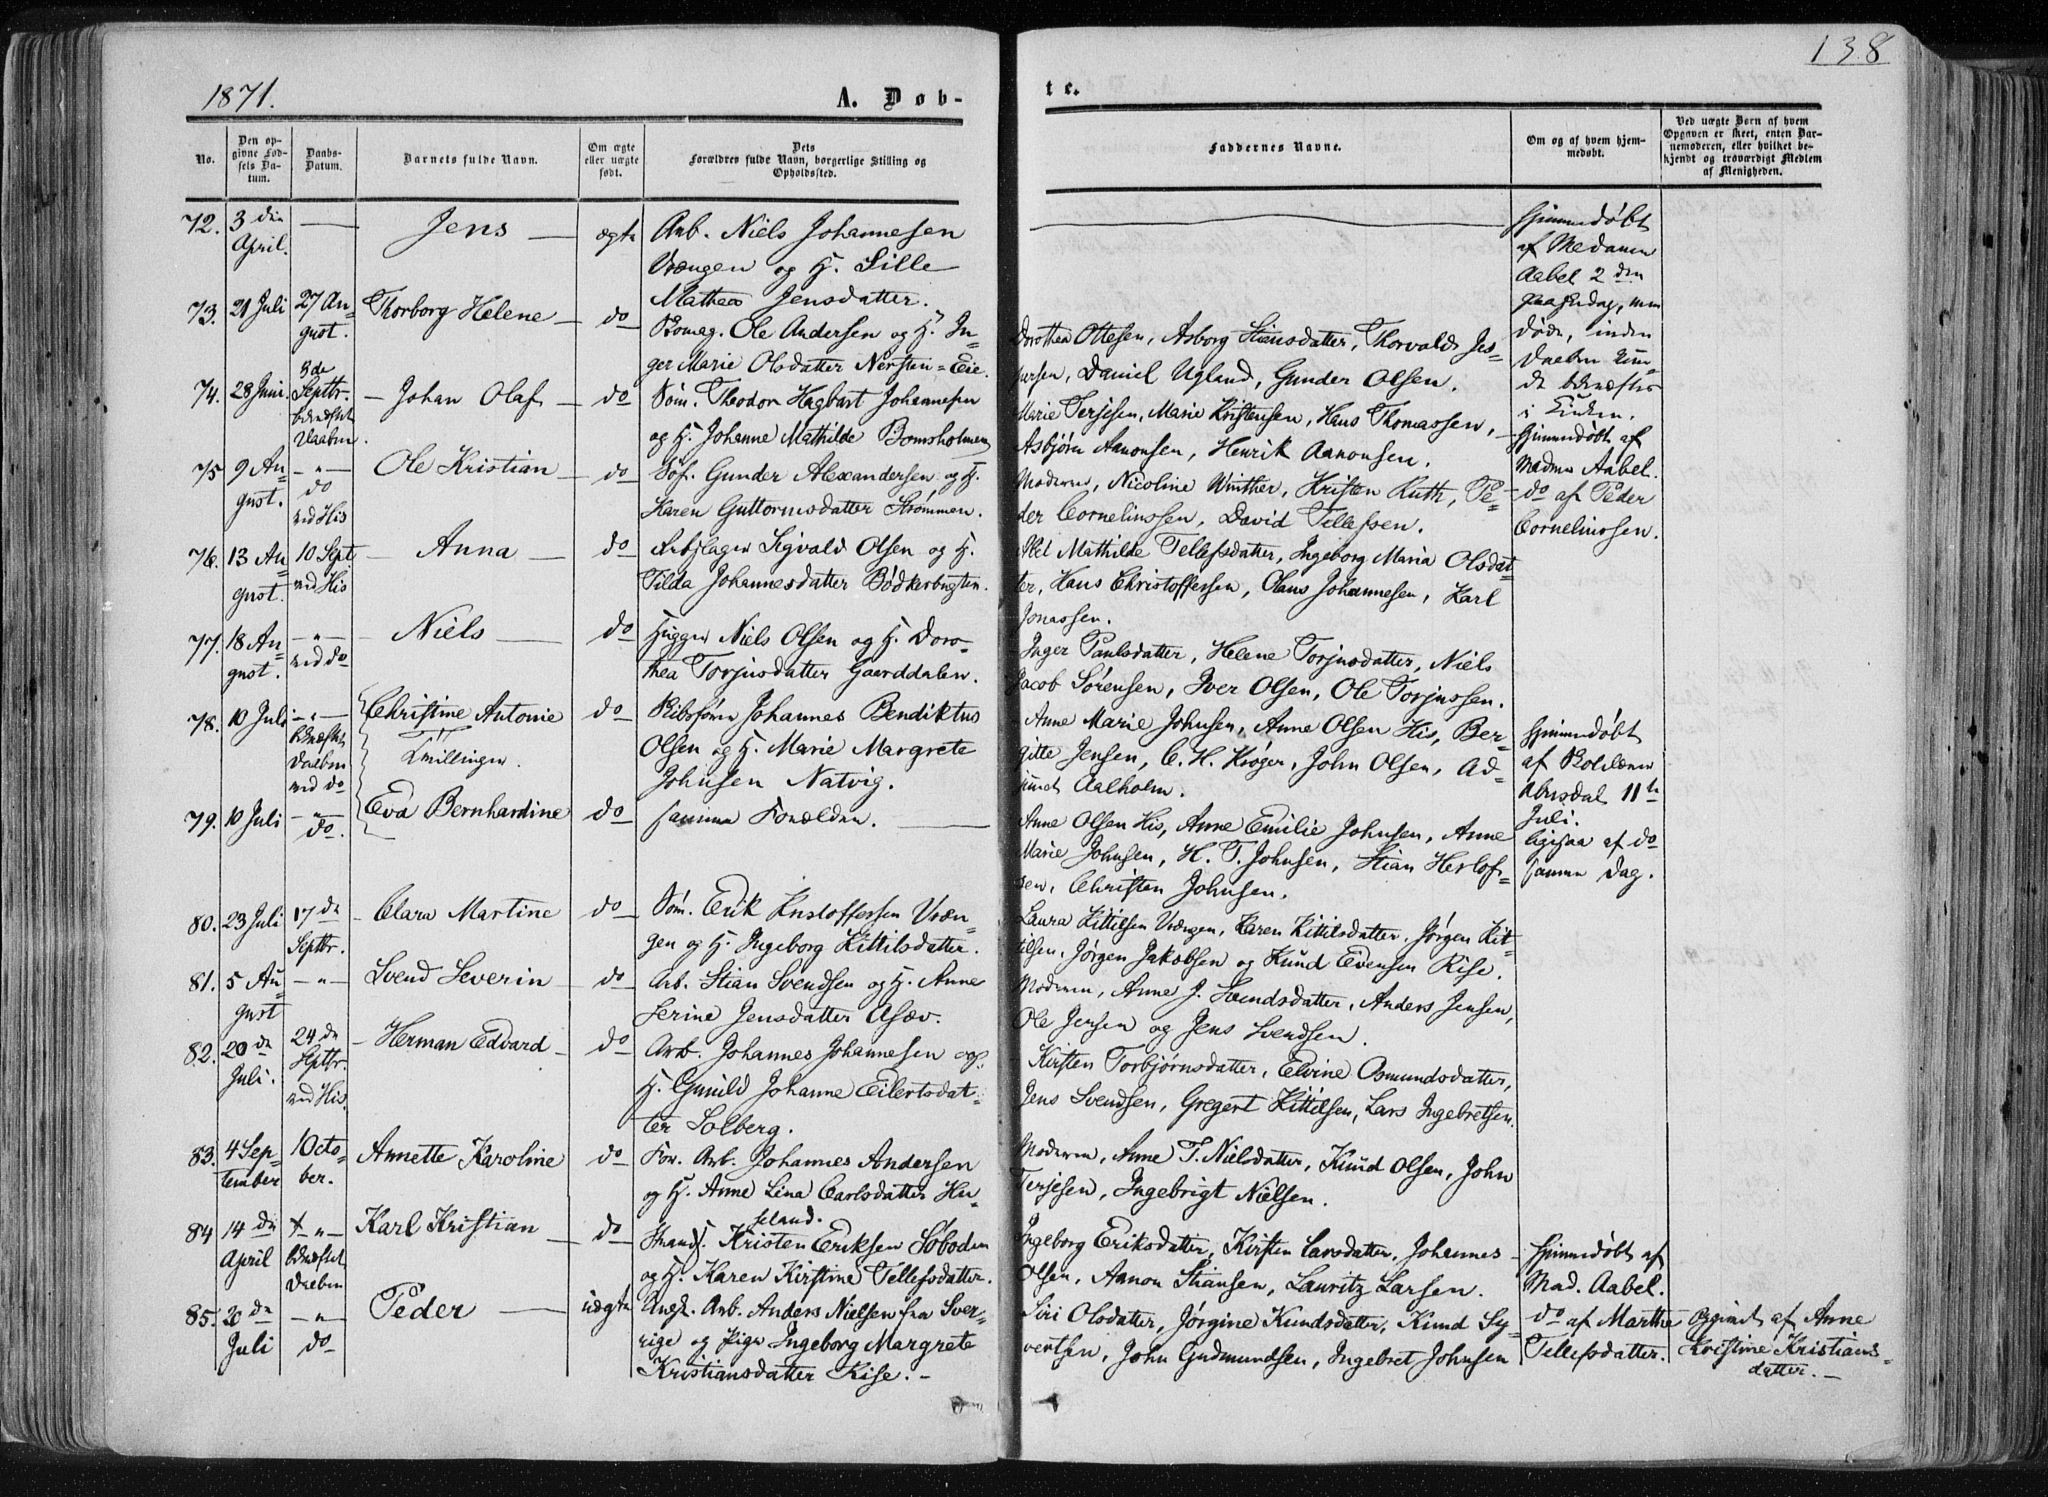 1871.
A. Døb-
te.
138
No.
Den op-
givne Fød-
sels Da-
tum.
Daabs-
Datum.
Barnets fulde Navn.
Om ægte
eller uægte
født.
Dets
Forældres fulde Navn, borgerlige Stilling og
Opholdssted.
Faddernes Navne.
Om og af hvem hjem-
medøbt.
Ved uægte Børn af hvem
Opgaven er skeet, enten Bar-
nemoderen, eller hvilket be-
kjendt og troværdigt Medlem
af Menigheden.
72. 3 die
April.
Jens
ægte
Arb. Niels Johannesen
Vrængen og H. Sille
Mathea Jensdatter.
Hjemmedøbt
af Madamen
Aabel 2 den
Paaskedag, men
døde, inden
Daaben kun-
de bekræftes
i Kirken.
73. 21 Juli
27 Au-
gust.
Thorborg Helene
do
Ole Andersen og H. In-
ger Marie Olsdatter Nersten=Eie.
Dorothea Ottesen, Asborg Stiansdatter, Thorvald Jes-
persen, Daniel Ugland, Gunder Olsen.
74. 28 Juni.
3de
Septbr.
bekræftet
Daaben.
Johan Olaf
do
Søm. Theodor Hagbart Johannesen
og H. Johanne Mathilde Bomsholmen
Marie Terjesen, Marie Kristensen, Hans Thomassen,
Asbjørn Aanonsen, Henrik Aanonsen.
Hjemmedøbt af
Madm Aabel.
75 9 Au-
gust.
-"-
do
ved His
Ole Kristian
do
Gunder Alexandersen og H.
Karen Guttormsdatter Strømmen.
Moderen, Nicoline Winther, Kristen Kuth, Pe-
der Cornelinssen, David Tellefsen.
do af Peder
Cornelinssen.
76. 13 Au-
gust.
10 Sept
ved His
Anna
do
Sigvald Olsen og H.
Tilda Johannesdatter Bødkerbugten.
Alet Mathilde Tellefsdatter, Ingeborg Maria Olsdat-
ter, Hans Christoffersen, Olaus Johannesen, Karl
Jonassen.
77. 18 Au-
gust.
-"-
ved do
Niels
do
Hugger Niels Olsen og H. Doro-
thea Torjusdatter Gaarddalen.
Inger Paulsdatter, Helene Torjusdatter, Niels
Jacob Sørensen, Iver Olsen, Ole Torjussen.
78. 10 Juli
-"-
bekræftet
Daaben
ved do
Christine Antonie
Tvillinger.
do
Johannes Bendiktus
Olsen og H. Marie Margrete
Johnsen Natvig.
Anne Marie Johnsen, Anne Olsen His, Ber-
gitte Jensen, C. H. Krøger, John Olsen, Ad-
junct Aalholm.
Hjemmedøbt
af
11te
Juli.
79. 10 Juli
-"-
do.
Eva Bernhardine
do
samme Forældre.
Anne Olsen His, Anne Emilie Johnsen, Anne
Marie Johnsen, H. T. Johnsen, Stian Herlof-
sen, Christen Johnsen.
ligesaa af do
samme Dag.
80. 23 Juli
17 de
Septbr.
Clara Martine
do
Søm. Erik Kristoffersen Vræn-
gen og H. Ingeborg Kittilsdatter.
Laura Kittilsen Vrængen, Karen Kittilsdatter, Jørgen Kit-
tilsen, Jørgen Jakobsen og Knud Evensen Rise.
81. 5 Au-
gust
-"-
Svend Severin
do
Arb. Stian Svendsen og H. Anne
Serine Jensdatter Asæv.
Moderen, Anne J. Svendsdatter, Anders Jensen,
Ole Jensen og Jens Svendsen.
82. 20 de
Juli.
24 de
Septbr.
ved His.
Herman Edvard
do
Arb. Johannes Johannesen og
H. Gunild Johanne Eilertsdat-
ter Solberg.
Kirsten Torbjørnsdatter, Elvine Osmundsdatter,
Jens Svendsen, Gregert Kittilsen, Lars Ingebretsen.
83. 4 Sep-
tember
1 Octo-
ber.
Annette Karoline
do
For. Arb. Johannes Andersen
og H. Anne Lina Carlsdatter Hu-
seland.
Moderen, Anne T. Nielsdatter, Knud Olsen, John
Terjesen, Ingebrigt Nielsen.
84 14 de
April
+ -"-
bekræftet
Daaben
Karl Kristian
do
Strands. Kristen Eriksen Soboden
og H. Karen Kirstine Tellefsdatter.
Ingeborg Eriksdatter, Kirsten Larsdatter, Johannes
Olsen, Aanon Stiansen, Lauritz Larsen.
Hjemmedøbt af
Mad. Aabel.
85. 20 de
Juli
-"-
do
Peder
uægte
Ungk. Arb. Anders Nielsen fra Sver-
rige og Pige Ingeborg Margrete
Kristiansdatter Rise.
Siri Olsdatter, Jørgine Knudsdatter, Knud Sy-
vertsen, John Gudmundsen, Ingebret Johnsen
do af Marthe
Tellefsdatter.
Opgivet af Anne
Kristine Kristians-
datter.